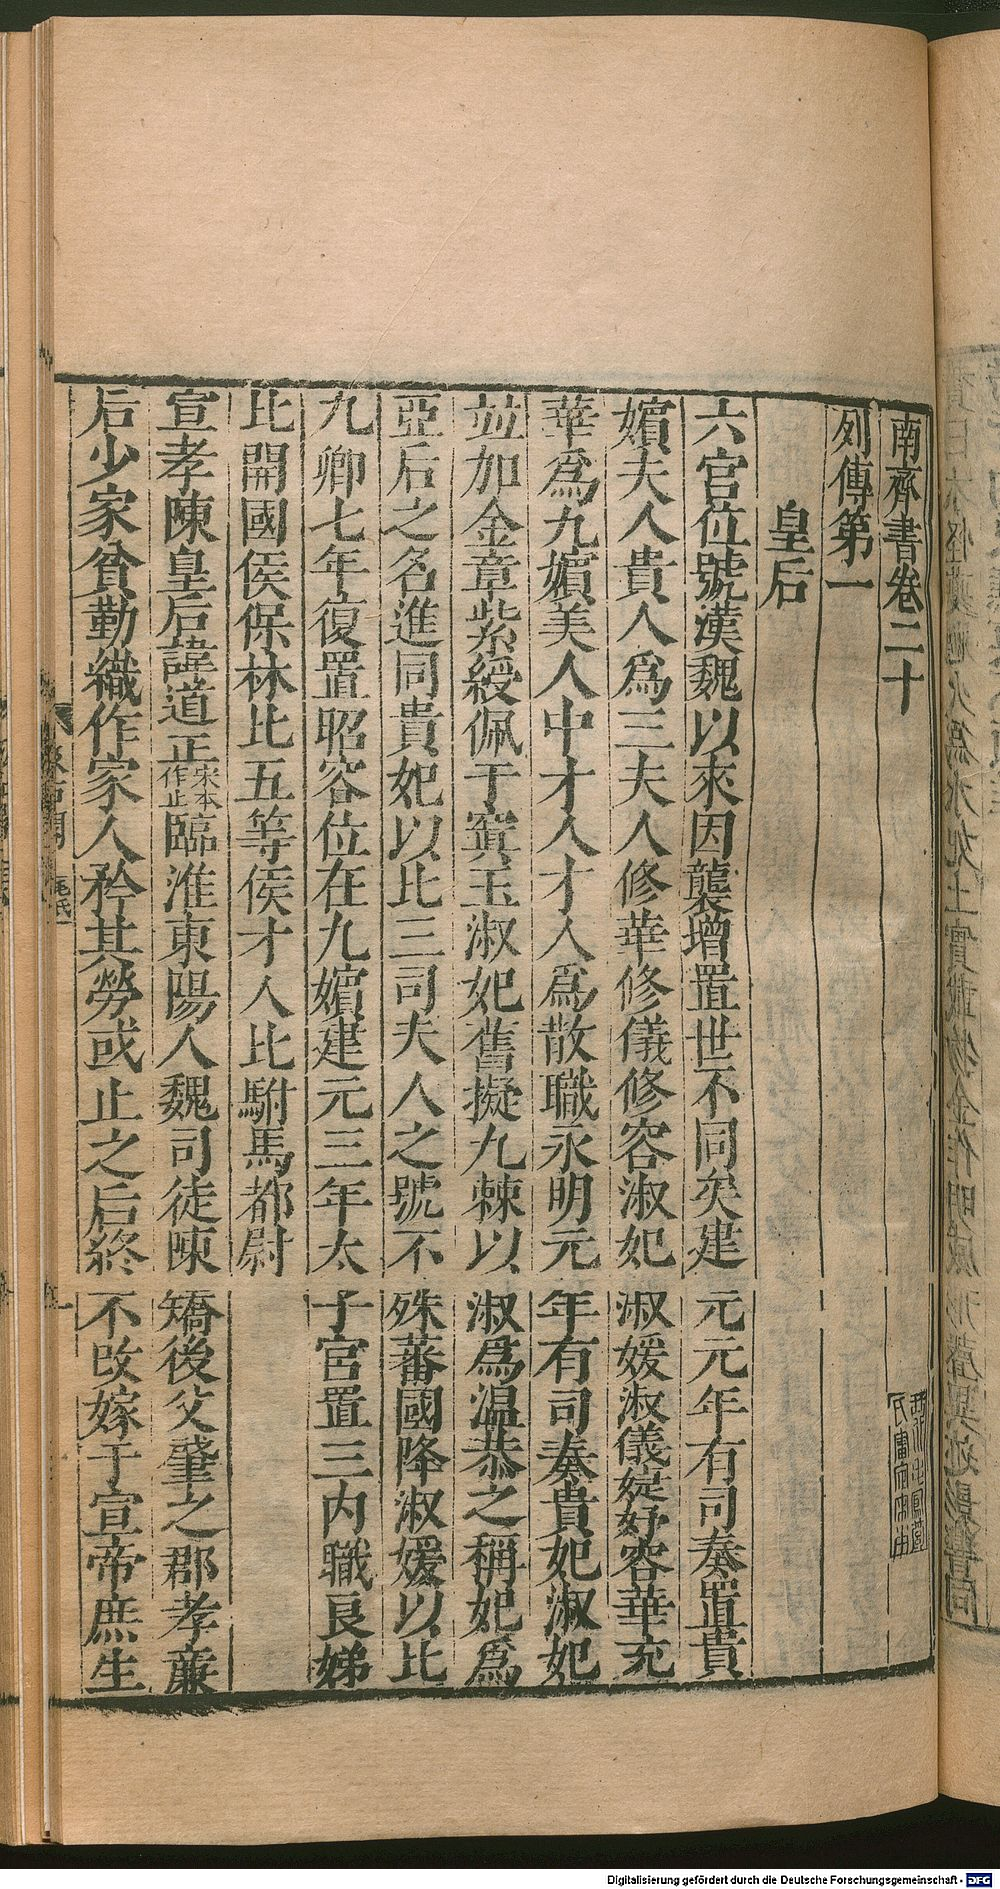 南齊書卷二十
列傳第一
皇后
六宮位號漢魏以來因襲增置世不同矣建元元年有司奏置貴
嬪夫人貴人爲三夫人修華修儀修容淑妃淑媛淑儀婕妤容華充
華爲九嬪美人中才人才人爲散職永明元年有司奏貴妃淑妃
並加金章紫綬佩于寘玉淑妃舊擬九棘以淑爲温恭之稱妃爲
亞后之名進同貴妃以比三司夫人之號不殊蕃國降淑媛以比
九卿七年復置昭容位在九嬪建元三年太子宮置三內職良娣
比開國侯保林比五等侯才人比駙馬都尉
宣孝陳皇后諱道正宋本作止臨淮東陽人魏司徒陳矯後父肇之郡孝廉
后少家貧勤織作家人矜其勞或止之后終不改嫁于宣帝庶生
Digitalisierung gefördert durch die Deutsche Forschungsgemeinschaft - DFG